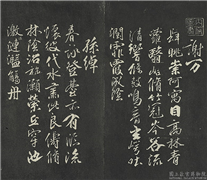 謝万
肆眺崇阿寓目高林青
蘿翳岫脩竹冠岑谷流
清響條鼓鳴音玄崿吐
潤霏霧成陰
孫綽
春詠登臺亦有臨流
懷彼伐木肅此良儔脩
竹蔭沼旋瀨縈丘穿池
激湍連濫觴舟